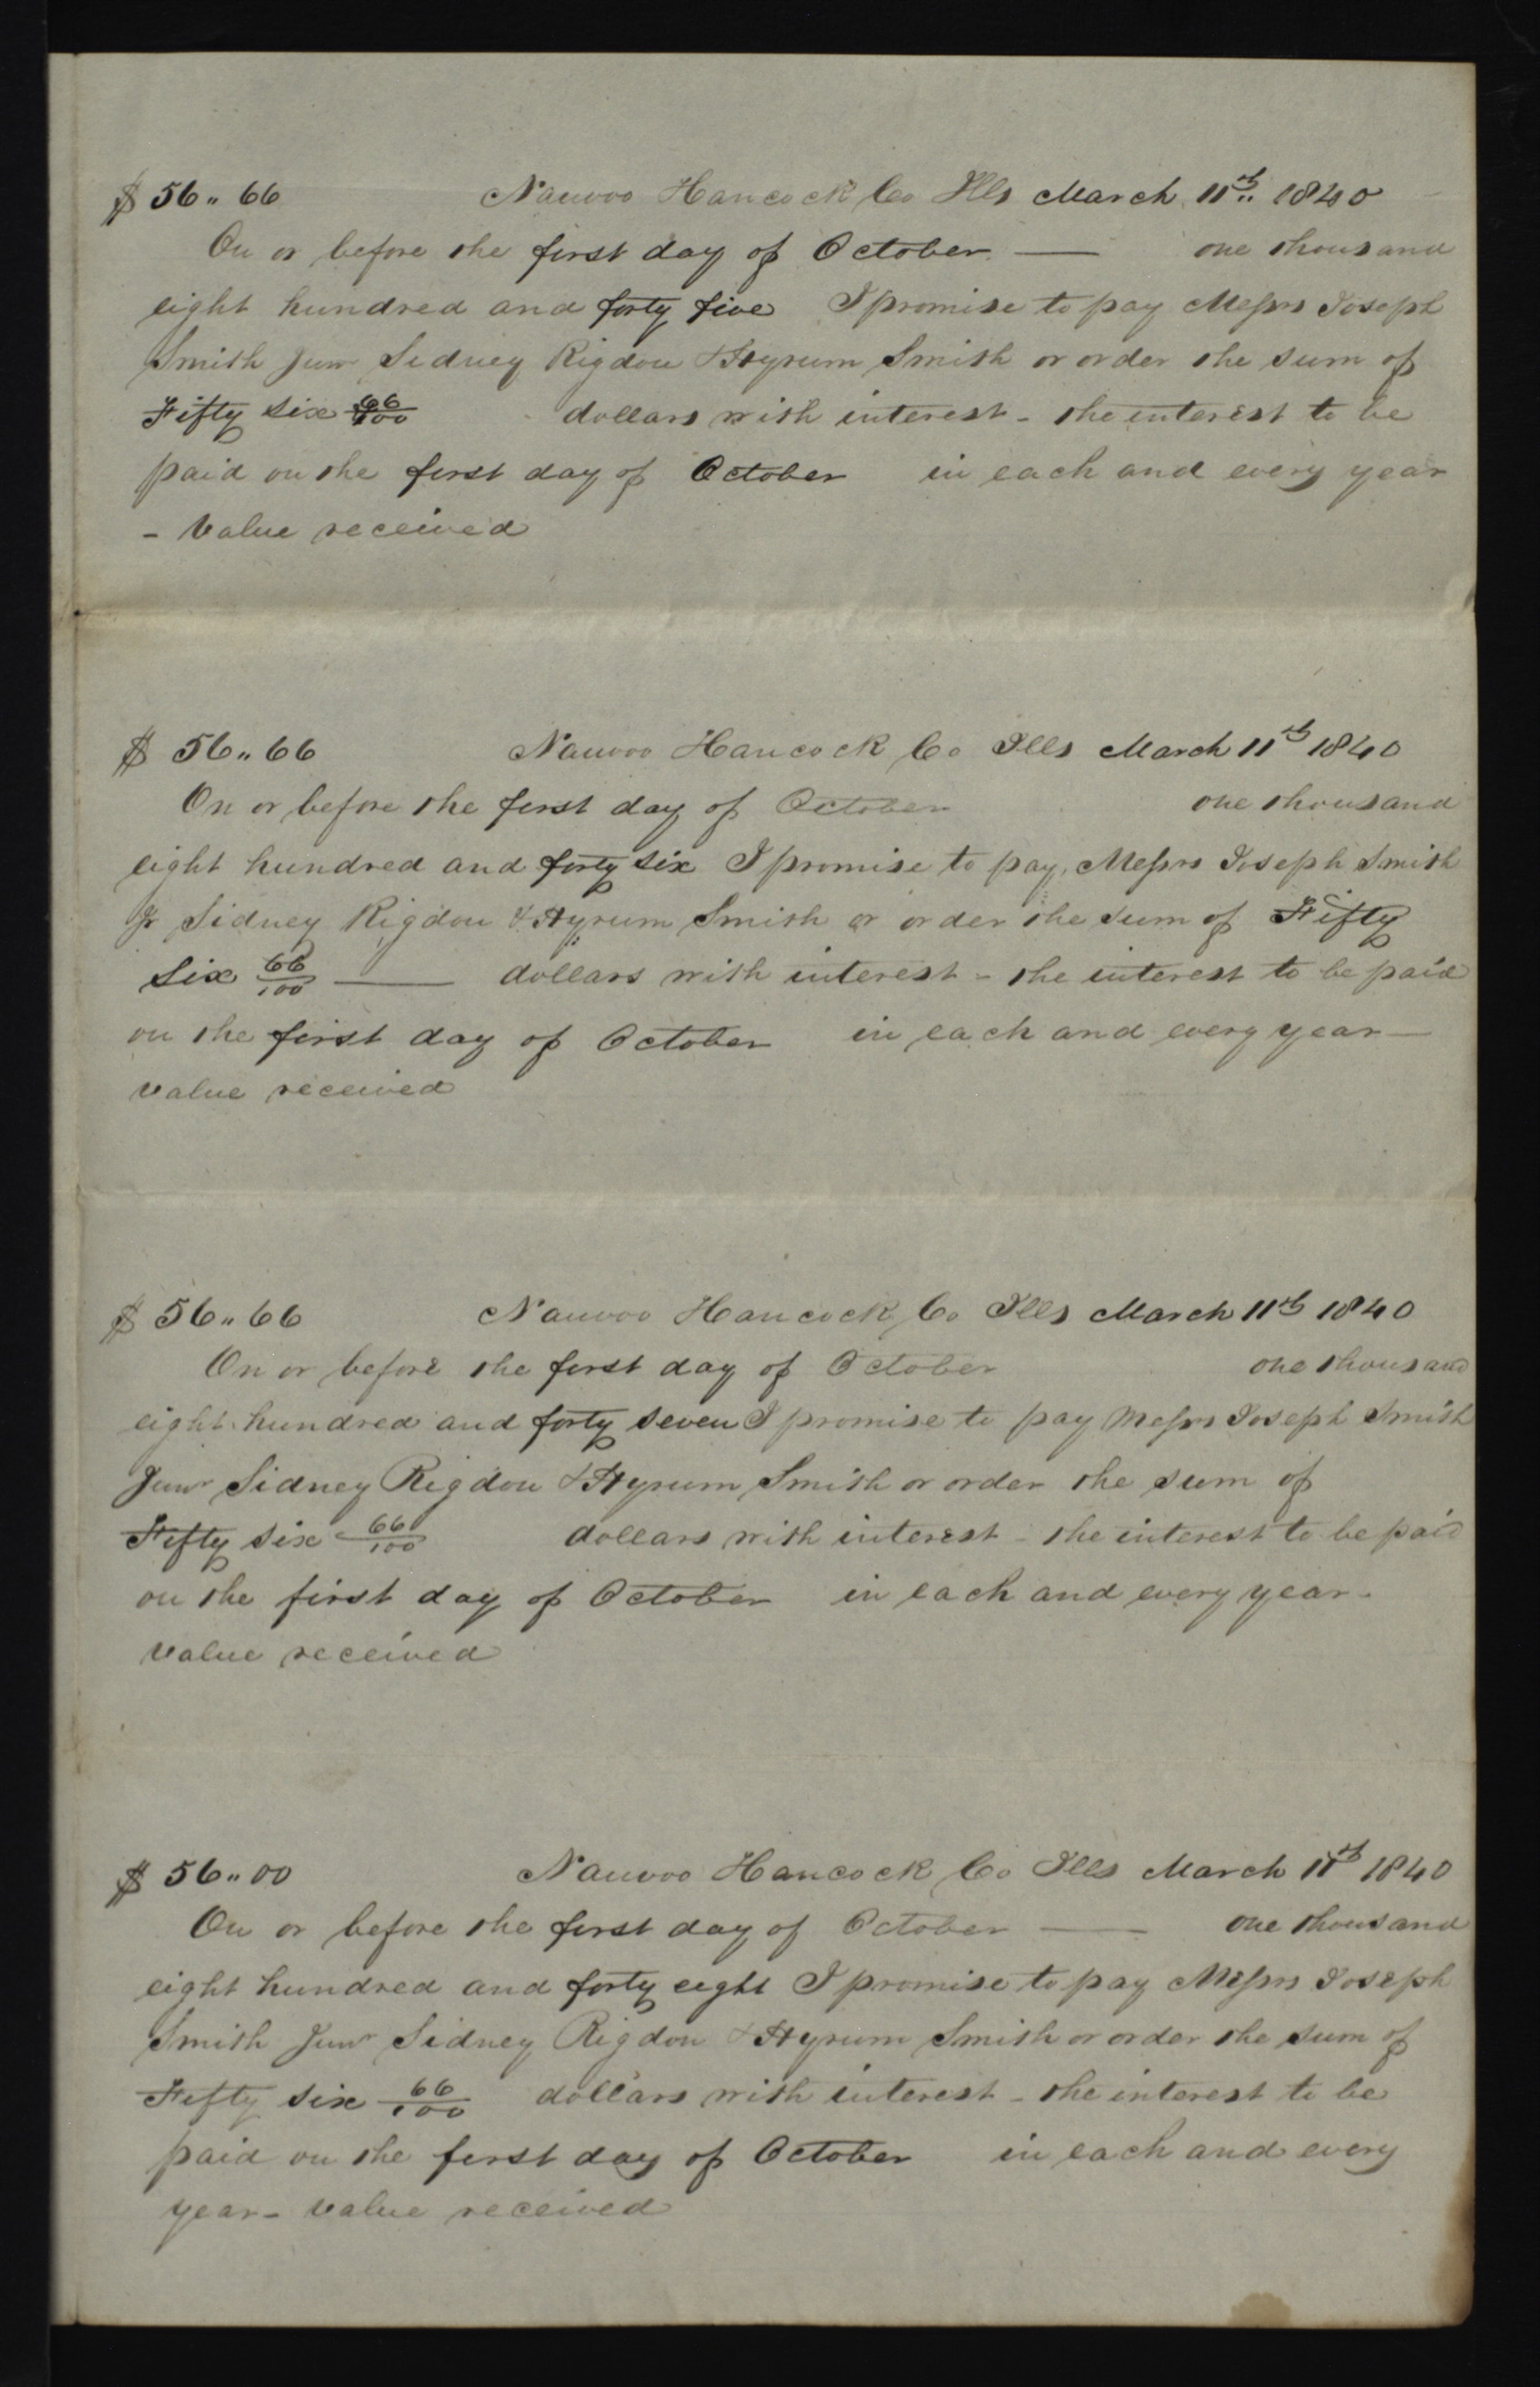 $ 56„ 66 Nauvoo Hancock Co Ills March 11th 1840
On or before the first day of October — one thousand
eight hundred and forty five I promise to pay Messrs Joseph
Smith Junr Sidney Rigdon & Hyrum Smith or order the sum of
Fifty six 66/100 dollars with interest - the interest to be
paid on the first day of October in each and every year
- value received
$ 56„ 66 Nauvoo Hancock Co Ills March 11th 1840
On or before the first day of October one thousand
eight hundred and forty six I promise to pay Messrs Joseph Smith
Jr Sidney Rigdon & Hyrum Smith or order the sum of Fifty
six 66/100 — dollars with interest - the interest to be paid
on the first day of October in each and every year —
value received
$ 56„ 66 Nauvoo Hancock Co Ills March 11th 1840
On or before the first day of October one thousand
eight hundred and forty seven I promise to pay Messrs Joseph Smith
Junr Sidney Rigdon & Hyrum Smith or order the sum of
Fifty six 66/100 dollars with interest - the interest to be paid
on the first day of October in each and every year -
value received
$ 56„ 00 Nauvoo Hancock Co Ills March 11th 1840
On or before the first day of October — one thousand
eight hundred and forty eight I promise to pay Messrs Joseph
Smith Junr Sidney Rigdon & Hyrum Smith or order the sum of
Fifty six 66/100 dollars with interest - the interest to be
paid on the first day of October in each and every
year - value received